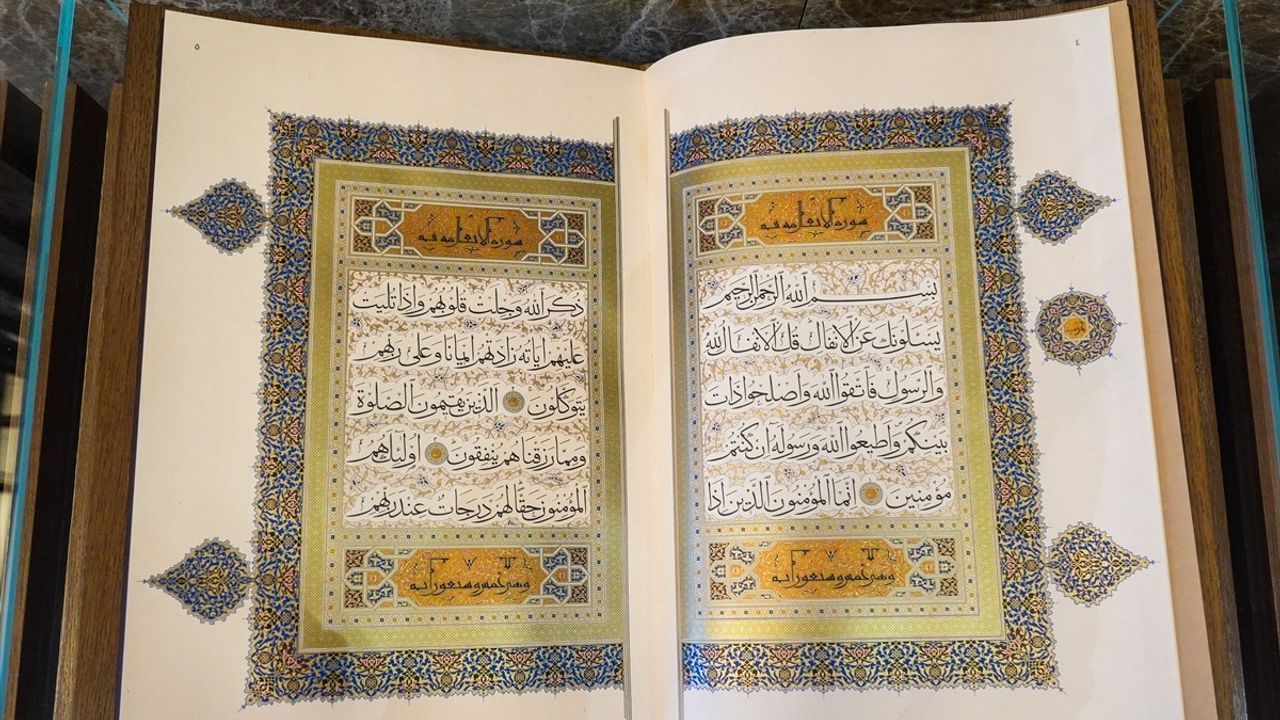 ٤
سورة الانفال مدنية
بسم الله الرحمن الرحيم
يسئلونك عن الانفال قل الانفال لله
والرسول فاتقوا الله واصلحوا ذات
بينكم واطيعوا الله ورسوله ان كنتم
مؤمنين انما المؤمنون الذين اذا
وهي خمس وسبعون اية
٥
سورة الانفال مدنية
ذكر الله وجلت قلوبهم واذا تليت
عليهم اياته زادتهم ايمانا وعلى ربهم
يتوكلون الذين يقيمون الصلوة
ومما رزقناهم ينفقون اولئك هم
المؤمنون حقا لهم درجات عند ربهم
وهي خمس وسبعون اية